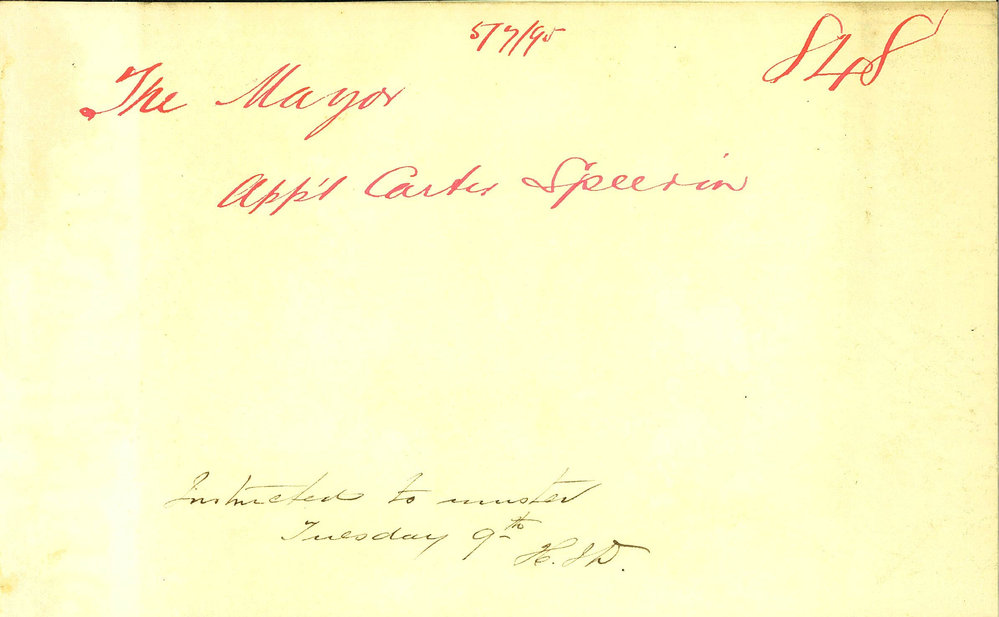 5/7/95
848
The Mayor
App't Carter Speerin
Instructed to muster
Tuesday 9th
H.J.D.